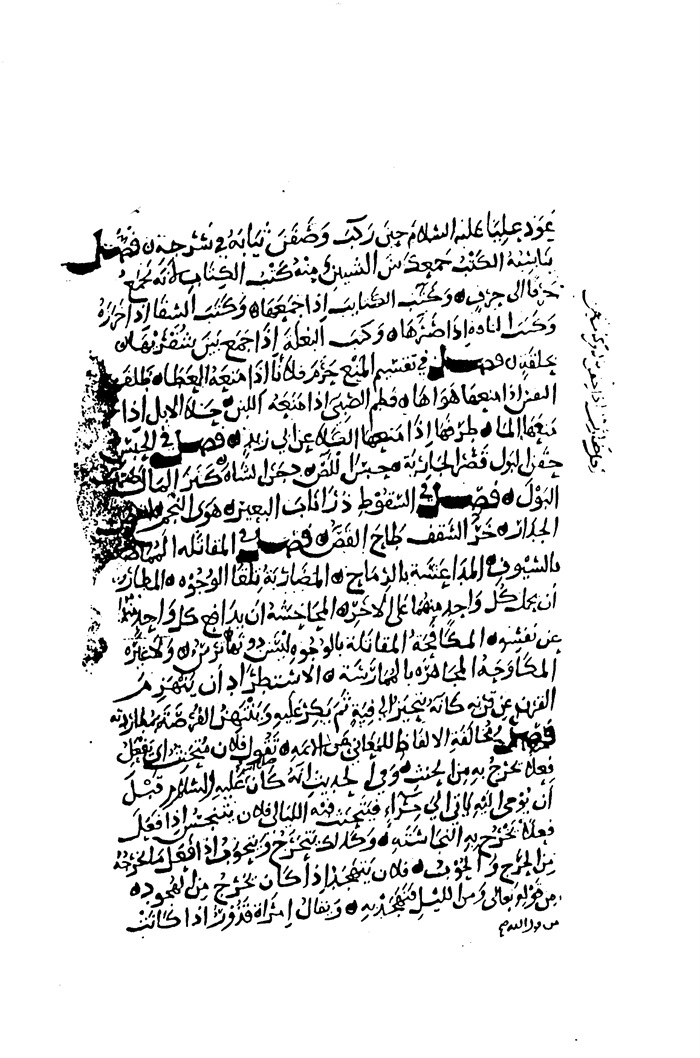 يعوذ عليا عليه السلام حين ركب وضفن ثيابه في سرجه ٥ فصل
يناسبه الكتب جمعك بين الشيئين ومنه كتب الكتاب لانه يجمع
حرفا الى حرف ٥ وكتب الكتايب اذا جمعها ٥ وكتب السقا اذا خرزه
وكتب الناقة اذا صرها ٥ وكتب البغلة اذا جمع بين شفريها
بحلقة ٥ فصل في تقسيم المنع حرم فلانا اذا منعه العطا ٥ ظلف
النفس اذا منعها هواها ٥ فطم الصبي اذا منعه اللبن ٥ حلا الابل اذا
منعها الما ٥ طرفها اذا منعها الكلا عن ابي زيد ٥ فصل في الحبس
حقن البول قصر الجارية ٥ حبس اللص ٥ رجن الشاة ٥ كنز المال
البول ٥ فصل في السقوط ذرا ناب البعير ٥ هوى النجم
الجدار ٥ خر السقف طاح الفص ٥ فصل في المقاتله
بالسيوف المداعسة بالرماح ٥ المضاربة تلقا الوجوه ٥ المطاردة
ان يحمل كل واحد منهما على الاخر ٥ المجاحشة ان يدافع كل واحد منهما
عن نفسه ٥ المكافحة المقاتلة بالوجوه ليس دونها ترس ٥ ولا غيره
المكاوحة المجاهرة بالممارسة ٥ الاستطراد ان ينهزم
القرن عن قرنه كانه يتحيز الى فية ثم يكر عليه وينتهز الفرصة بمطاردته
فصل في مخالفة الالفاظ للمعاني عن الايمه ٥ تقول فلان يتحنث اي يفعل
فعلا يخرج به من الحنث ٥ وفي الحديث انه كان عليه السلام قبل
ان يوحى اليه ياتي الى حراء فيتحنث فيه الليالي فلان يتنجس اذا فعل
فعلا يخرج به من النجاسة ٥ وكذلك يتحرج ويتحوب اذا فعل ما يخرجه
من الحرج والحوب ٥ فلان يتهجد اذا كان يخرج من الهجود ٥
من قوله تعالى ومن الليل فتهجد به ٥ ويقال امراة قذور اذا كانت